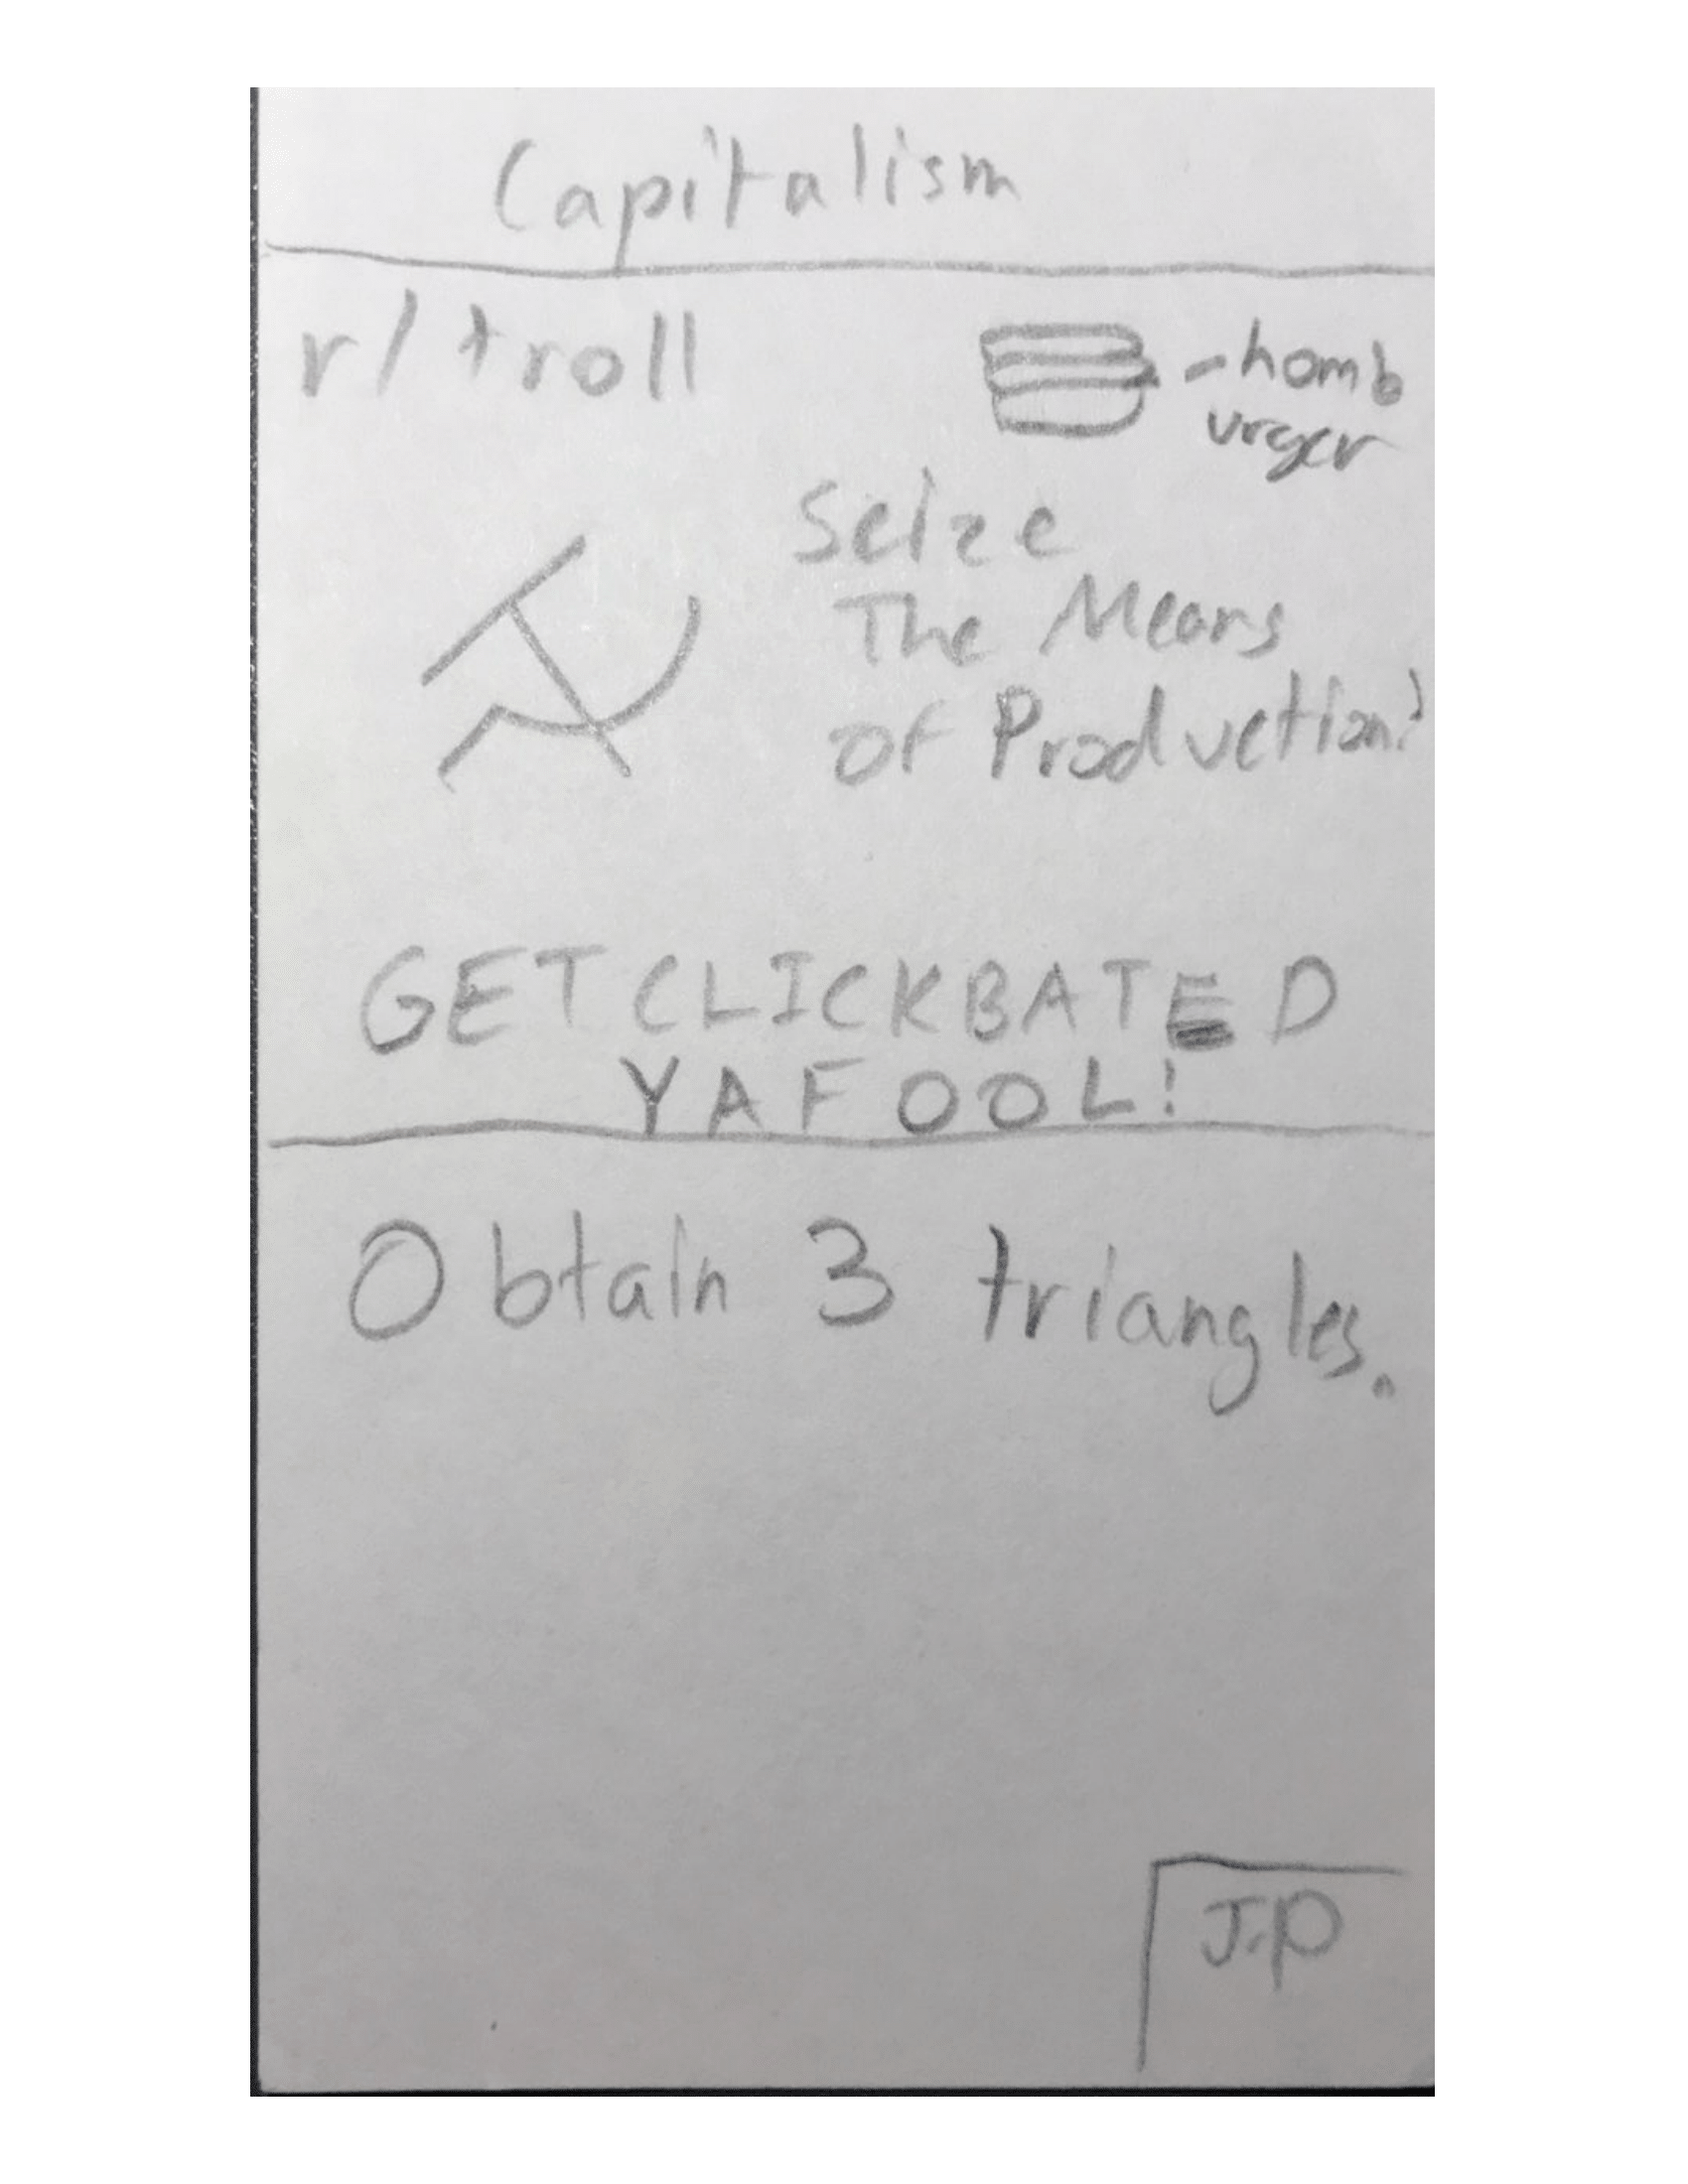 Capitalism
r/troll
-homb
urger
Seize
The Means
of Production!
GET CLICKBATED
YA FOOL!
Obtain 3 triangles.
J-P